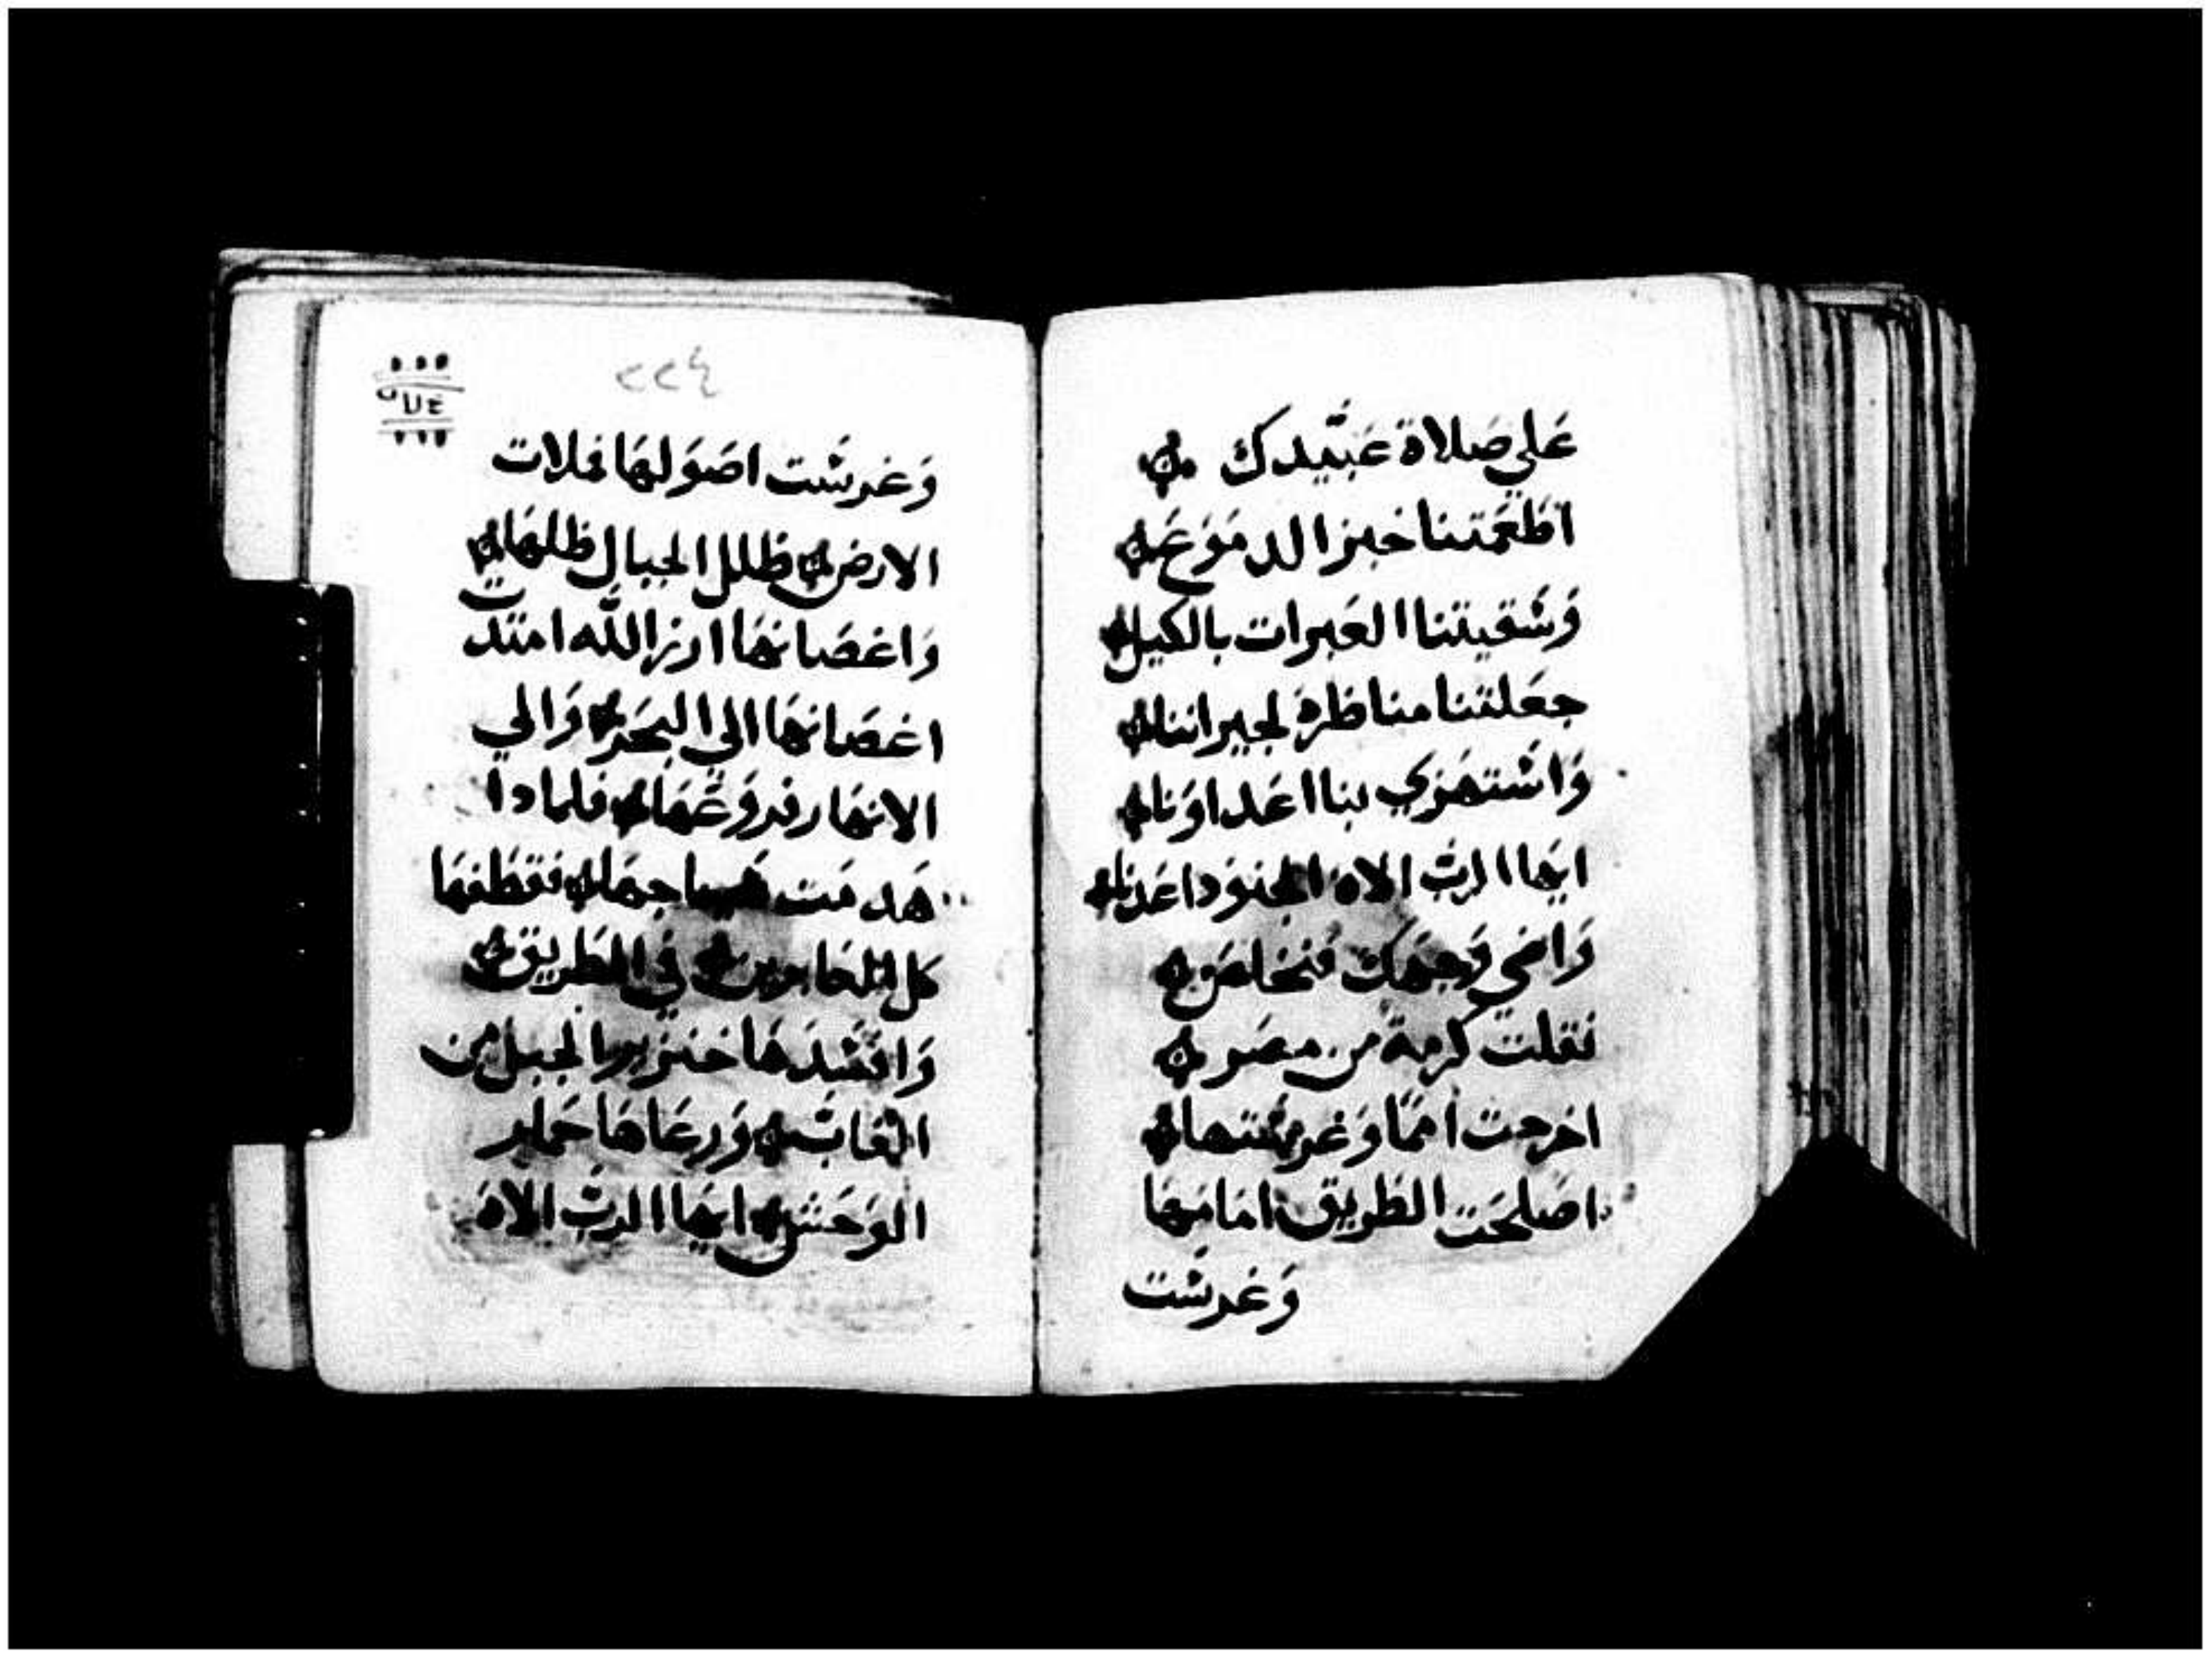 علي صلاة عبيدك
اطعمتنا خبز الدموع
وشقيتنا العبرات بالكيل
جعلتنا مناظرة لجيراننا
واشتهزي بنا اعداونا
ايها الرب الاه الجنود اعدنا
واضي وجهك فنخلص
نقلت كرمة من مصر
اخرجت امما وغرشتها
اصلحت الطريق امامها
وغرشت
٢٢٤
وغرشت اصولها فملات
الارض ظلل الجبال ظلها
واغصانها ارز الله امتدت
اغصانها الي البحر والي
الانهار فروعها فلمادا
هدمت سياجها فقطفها
كل العابرين في الطريق
وافشدها خنزير الجبل من
الغاب ورعاها حمار
الوحش ايها الرب الاه